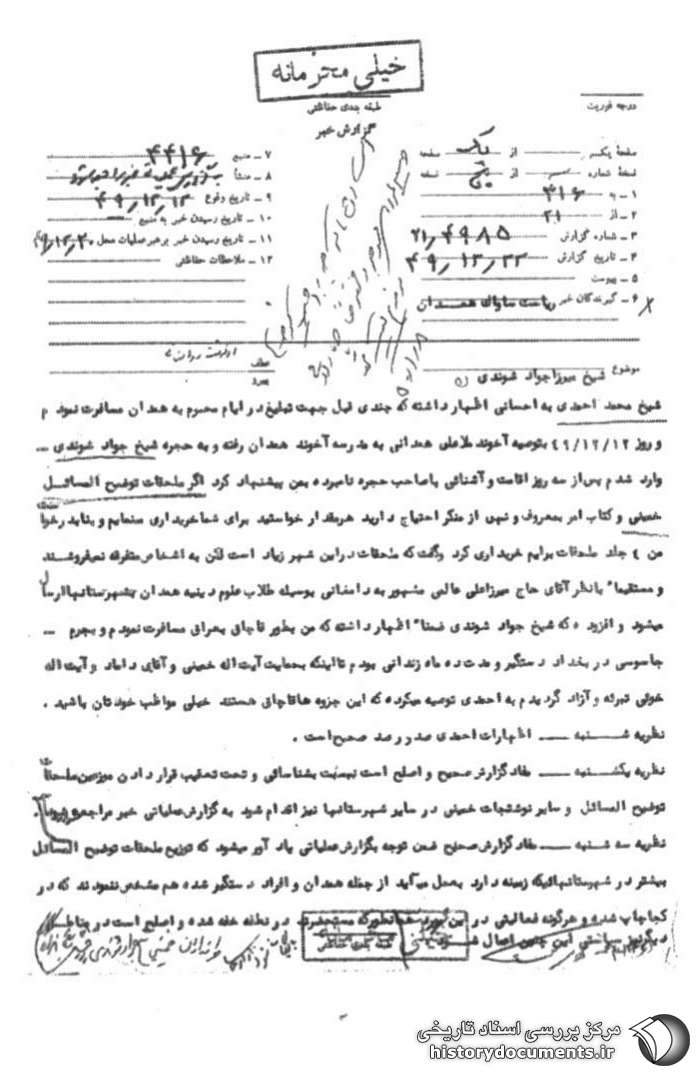 خیلی محرمانه
طبقه بندی حفاظتی
گزارش خبر
درجه فوریت
صفحه یکم از یک صفحه
نسخه شماره از پنج نسخه
۱ ـ به ۳۱۶
۲ ـ از ۲۱
۳ ـ شماره گزارش ۲۱٫۴۹۸۵
۴ ـ تاریخ گزارش ۴۹٫۱۲٫۲۲
۵ ـ پیوست
۶ ـ گیرندگان خبر ریاست ساواک همدان
۷ ـ منبع ۴۴۱۶
۸ ـ منشأ
۹ ـ تاریخ وقوع ۴۹٫۱۲٫۱۲
۱۰ ـ تاریخ رسیدن خبر به منبع
۱۱ ـ تاریخ رسیدن خبر برهبر عملیات محل ۴۹٫۱۲٫۲۰
۱۲ ـ ملاحظات حفاظتی
موضوع شیخ میرزاجواد شوندی
عطف
شیخ محمد احمدی به احسانی اظهار داشته که چندی قبل جهت تبلیغ در ایام محرم به همدان مسافرت نمودم
و روز ۴۹/۱۲/۱۲ بتوصیه آخوند ملاعلی همدانی به مدرسه آخوند همدان رفته و به حجره شیخ جواد شوندی ـ
وارد شدم پس از سه روز اقامت و آشنائی با صاحب حجره نامبرده بمن پیشنهاد کرد اگر ملحقات توضیح المسائل
خمینی و کتاب امر بمعروف و نهی از منکر احتیاج دارید هرمقدار خواستید برای شما خریداری مینمایم و بنابدرخواست
من ۴ جلد ملحقات برایم خریداری کرد وگفت که ملحقات دراین شهر زیاد است لکن به اشخاص متفرقه نمیفروشند
و مستقیما" بانظر آقای حاج میرزاعلی عالمی مشهور به دامغانی بوسیله طلاب علوم دینیه همدان بشهرستانها ارسال
میشود و افزوده که شیخ جواد شوندی ضمنا" اظهار داشته که من بطور قاچاق بعراق مسافرت نمودم و بجرم ـ
جاسوسی در بغداد دستگیر و مدت ده ماه زندانی بودم تا اینکه بحمایت آیت اله خمینی و آقای داماد و آیت اله
خوئی تبرئه و آزاد گردیدم به احمدی توصیه میکرده که این جزوه ها قاچاق هستند خیلی مواظب خودتان باشید .
نظریه شنبه ـــ اظهارات احمدی صددرصد صحیح است .
نظریه یکشنبه ـــ مفاد گزارش صحیح و اصلح است نسبت بشناسائی و تحت تعقیب قرار دادن موزعین ملحقات
توضیح المسائل و سایر نوشتجات خمینی در سایر شهرستانها نیز اقدام شود به گزارش عملیاتی خبر مراجعه فرمایند .
نظریه سه شنبه ـــ مفاد گزارش صحیح ضمن توجه بگزارش عملیاتی یادآور میشود که توزیع ملحقات توضیح المسائل
بیشتر در شهرستانهائیکه زمینه دارد بعمل میآید از جمله همدان و افراد دستگیر شده هم مشخص ننمودند که در
کجا چاپ شده و هرگونه فعالیتی در این مورد همانطورکه مستحضرید در نطفه خفه شده و اصلح است در
مرکز بررسی اسناد تاریخی
historydocuments.ir